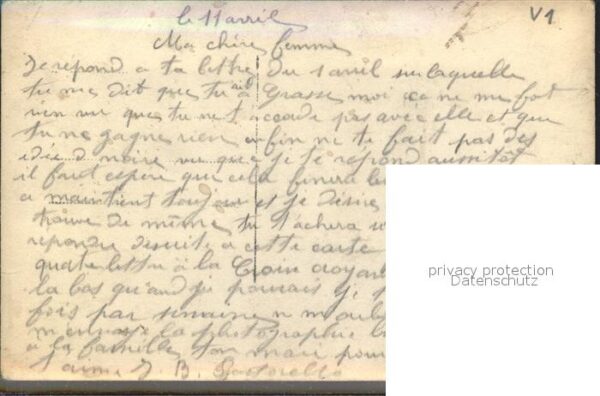 V1
le 11 avril
Ma chère femme
Je répond a ta lettre du 1 avril sur laquelle
tu me dit que tu à Grasse moi ca ne me fot
rien vu que tu ne t accorde pas avec elle et que
tu ne gagne rien enfin ne te fait pas des
idée d noire vu que je te répond aussitot
il faut espere que cela finira
a maintient toujour et je désire
trouve de même tu tachera
repondre desuite a cette carte
quatr lettre à la Croix croyant
la bas qu'and je pouvais
fois par semaine n m oublie
m envoye la photographie
à la famille ton mari pour
t aime J. B.
privacy protection
Datenschutz